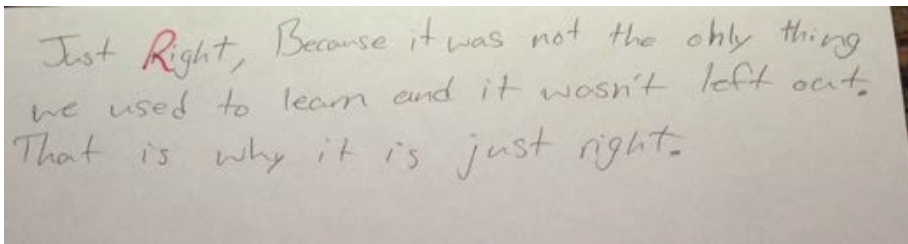 Just Right, Because it was not the only thing
we used to learn and it wasn't left out.
That is why it is just right.